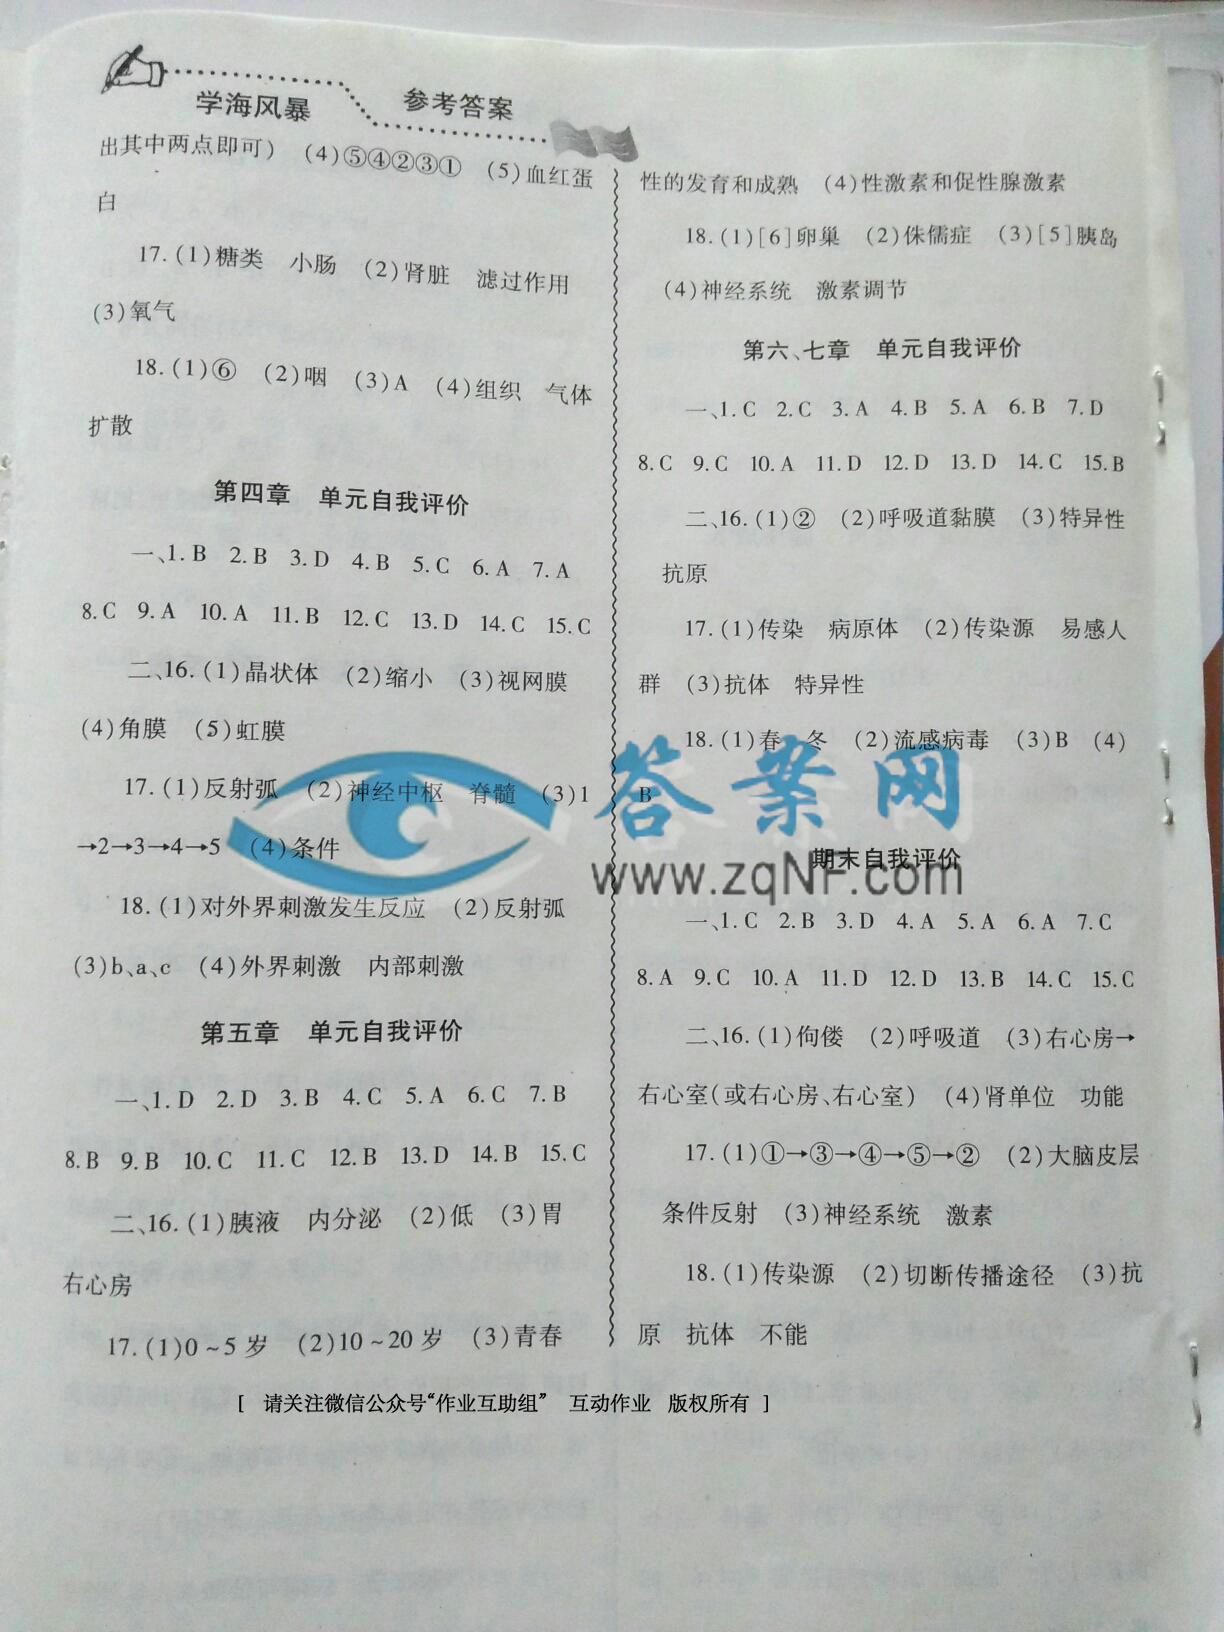 学海风暴 参考答案
出其中两点即可) (4)⑤④②③① (5)血红蛋
白
17.(1)糖类 小肠 (2)肾脏 滤过作用
(3)氧气
18.(1)⑥ (2)咽 (3)A (4)组织 气体
扩散
第四章 单元自我评价
一、1.B 2.B 3.D 4.B 5.C 6.A 7.A
8.C 9.A 10.A 11.B 12.C 13.D 14.C 15.C
二、16.(1)晶状体 (2)缩小 (3)视网膜
(4)角膜 (5)虹膜
17.(1)反射弧 (2)神经中枢 脊髓 (3)1
→2→3→4→5 (4)条件
18.(1)对外界刺激发生反应 (2)反射弧
(3)b、a、c (4)外界刺激 内部刺激
第五章 单元自我评价
一、1.D 2.D 3.B 4.C 5.A 6.C 7.B
8.B 9.B 10.C 11.C 12.B 13.D 14.B 15.C
二、16.(1)胰液 内分泌 (2)低 (3)胃
右心房
17.(1)0~5岁 (2)10~20岁 (3)青春
性的发育和成熟 (4)性激素和促性腺激素
18.(1)[6]卵巢 (2)侏儒症 (3)[5]胰岛
(4)神经系统 激素调节
第六、七章 单元自我评价
一、1.C 2.C 3.A 4.B 5.A 6.B 7.D
8.C 9.C 10.A 11.D 12.D 13.D 14.C 15.B
二、16.(1)② (2)呼吸道黏膜 (3)特异性
抗原
17.(1)传染 病原体 (2)传染源 易感人
群 (3)抗体 特异性
18.(1)春、冬 (2)流感病毒 (3)B (4)
B
答案网
www.zqNF.com
期末自我评价
一、1.C 2.B 3.D 4.A 5.A 6.A 7.C
8.A 9.C 10.A 11.D 12.D 13.B 14.C 15.C
二、16.(1)佝偻 (2)呼吸道 (3)右心房→
右心室(或右心房、右心室) (4)肾单位 功能
17.(1)①→③→④→⑤→② (2)大脑皮层
条件反射 (3)神经系统 激素
18.(1)传染源 (2)切断传播途径 (3)抗
原 抗体 不能
[ 请关注微信公众号“作业互助组” 互动作业 版权所有 ]